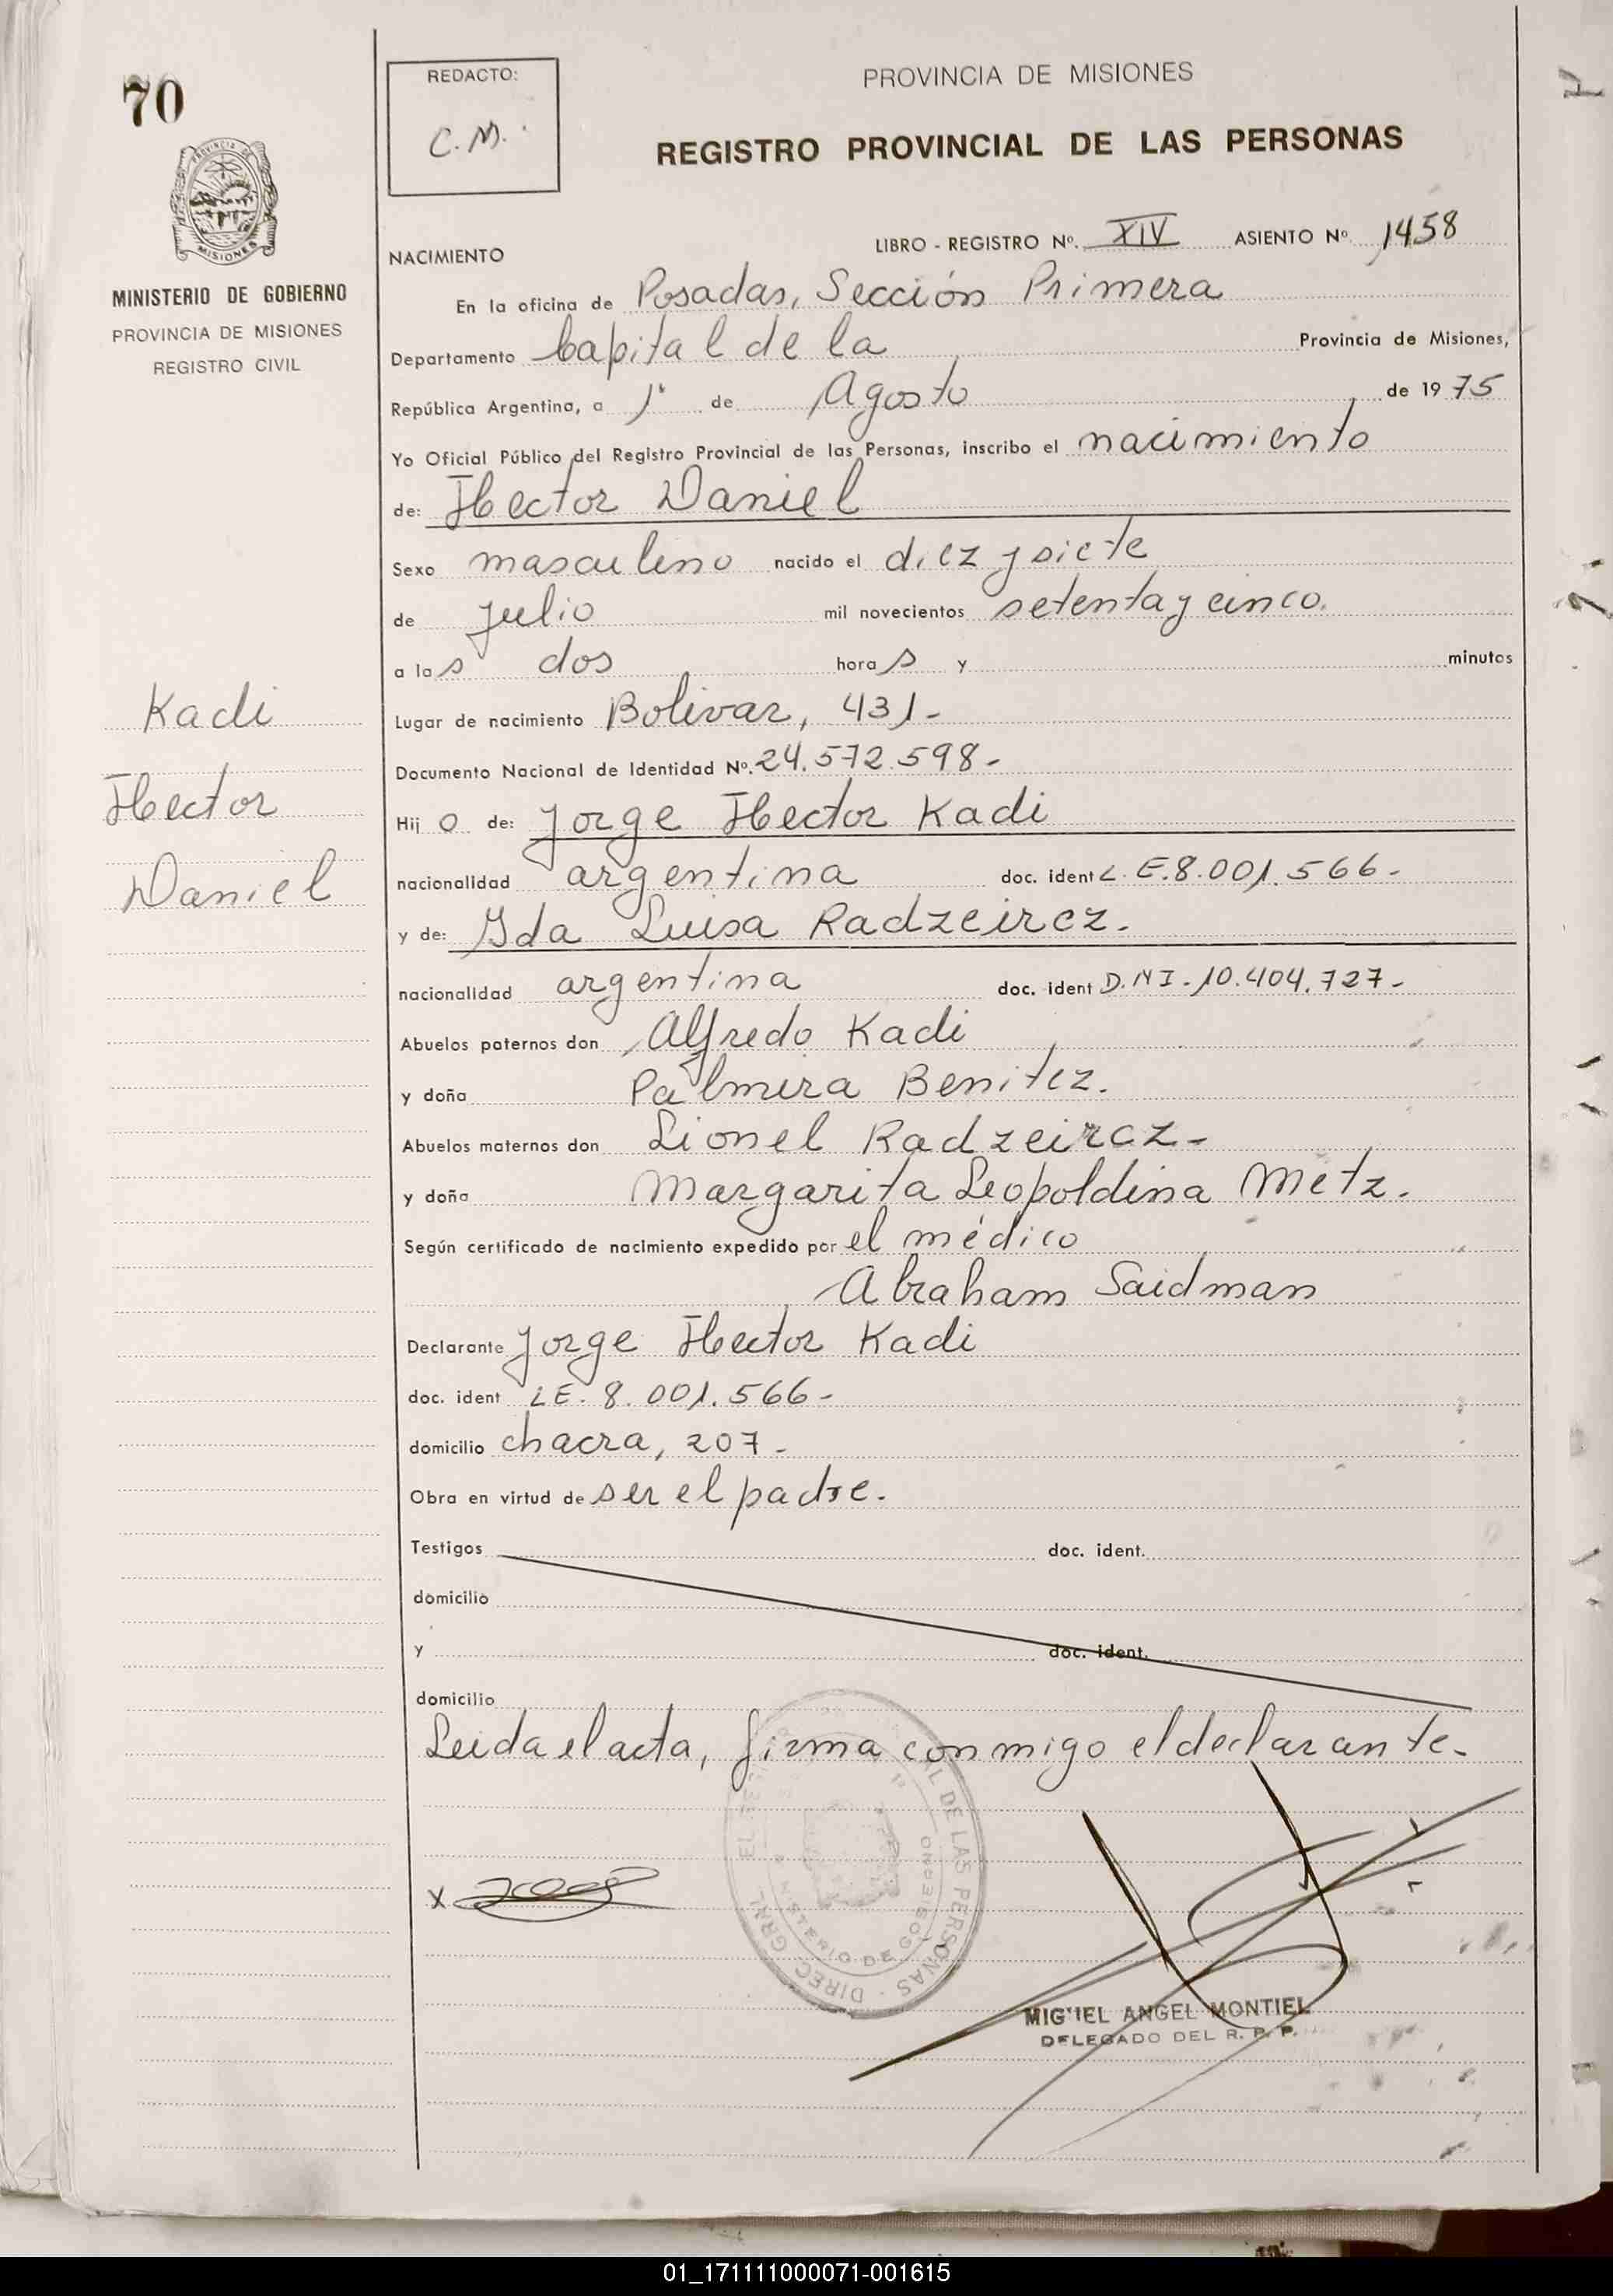 70
REDACTO:
C.M.
PROVINCIA DE MISIONES
REGISTRO PROVINCIAL DE LAS PERSONAS
PROVINCIA DE
MISIONES
MINISTERIO DE GOBIERNO
PROVINCIA DE MISIONES
REGISTRO CIVIL
LIBRO - REGISTRO Nº. XIV ASIENTO Nº. 1458
NACIMIENTO
En la oficina de Posadas, Sección Primera
Departamento Capital de la Provincia de Misiones,
República Argentina, a 1º de Agosto de 1975
Yo Oficial Público del Registro Provincial de las Personas, inscribo el nacimiento
de: Hector Daniel
Sexo masculino nacido el diez y siete
de Julio mil novecientos setenta y cinco.
a las dos horas y minutos
Lugar de nacimiento Bolivar, 431-
Documento Nacional de Identidad Nº. 24.572.598-
Hijo de: Jorge Hector Kadi
nacionalidad argentina doc. ident L.E.8.001.566-
y de: Ida Luisa Radzeircz.
nacionalidad argentina doc. ident D.NI-10.404.727-
Abuelos paternos don Alfredo Kadi
y doña Palmira Benitez.
Abuelos maternos don Lionel Radzeircz-
y doña Margarita Leopoldina Metz.
Según certificado de nacimiento expedido por el médico
Abraham Saidman
Declarante Jorge Hector Kadi
doc. ident LE-8.001.566-
domicilio chacra, 207-
Obra en virtud de ser el padre.
Testigos doc. ident.
domicilio
y doc. ident.
domicilio
Leida el acta, firma conmigo el declarante.
Kadi
Hector
Daniel
X
DE LAS PERSONAS - DIREC GRAL
MINISTERIO DE GOBIERNO
MIGUEL ANGEL MONTIEL
DELEGADO DEL R. P. P.
01_171111000071-001615